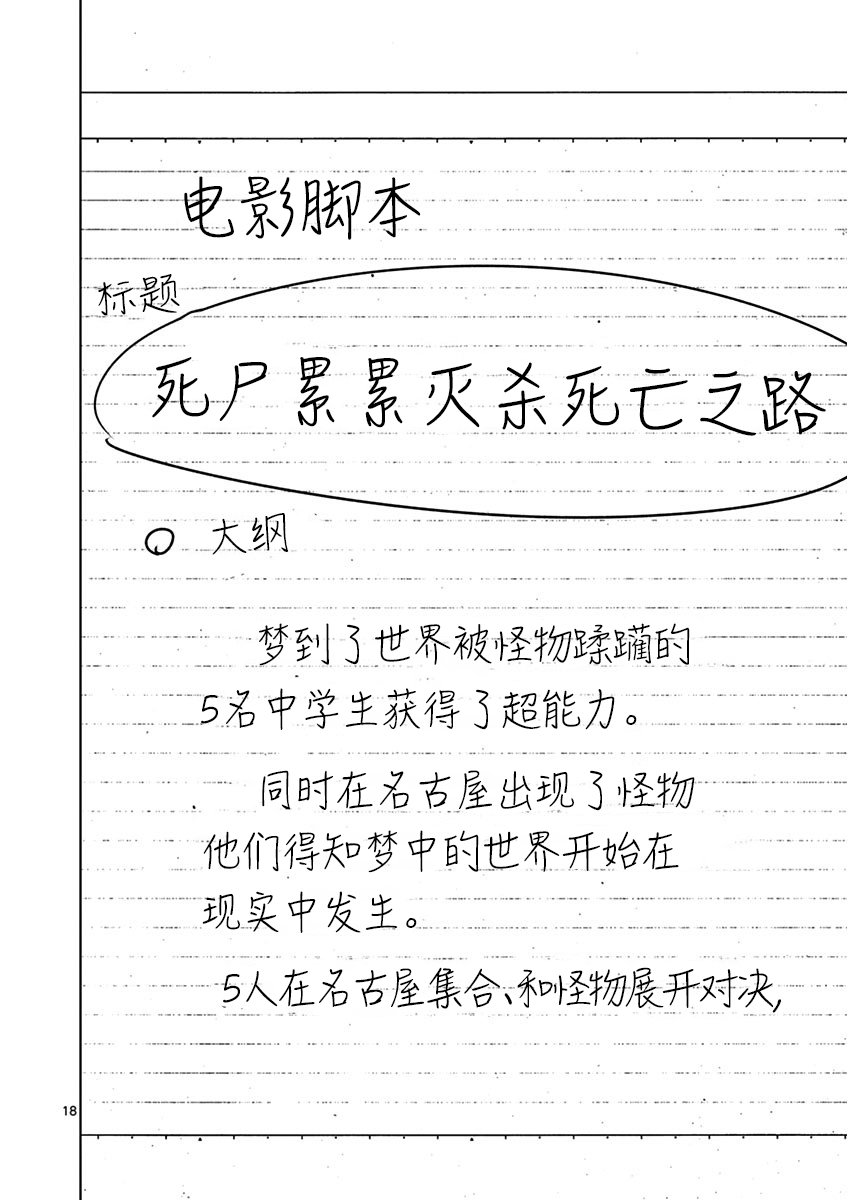 电影脚本
标题
死尸累累灭杀死亡之路
○ 大纲
梦到了世界被怪物蹂躏的
5名中学生获得了超能力。
同时在名古屋出现了怪物
他们得知梦中的世界开始在
现实中发生。
5人在名古屋集合、和怪物展开对决,
18